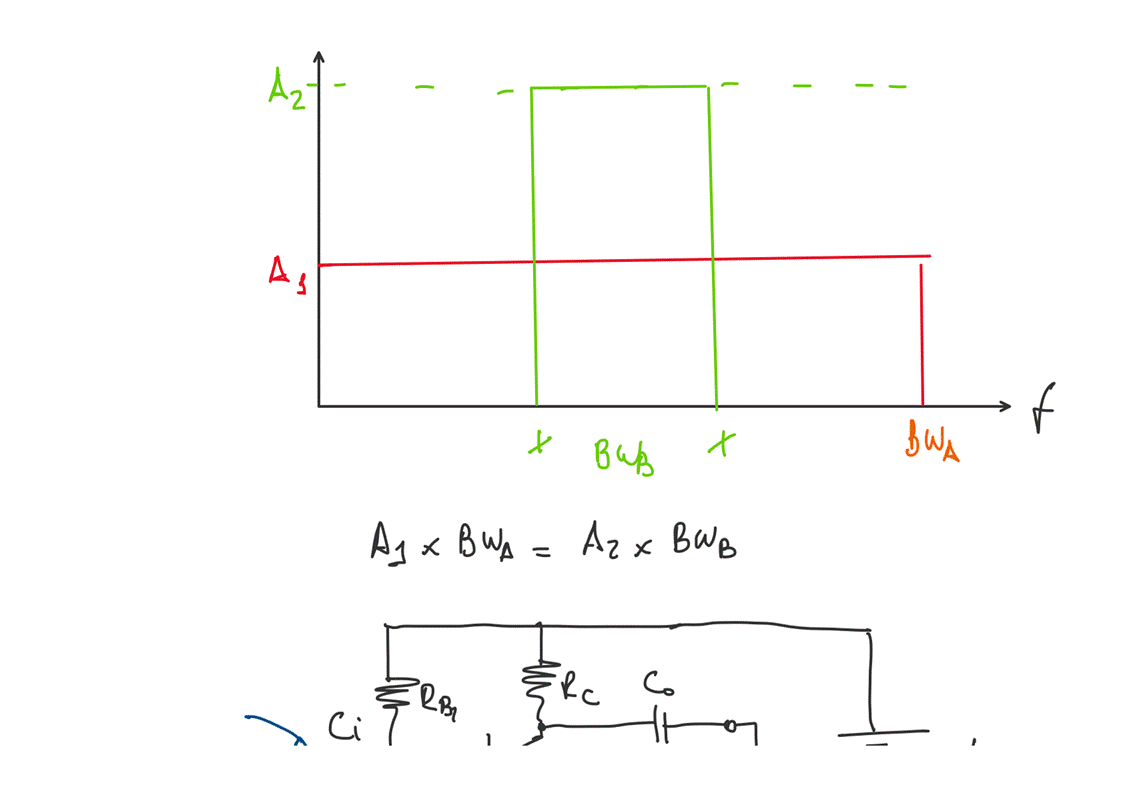 A2
A1
f
BWB
BWA
A1 × BWA = A2 × BWB
RC
Co
RB1
Ci